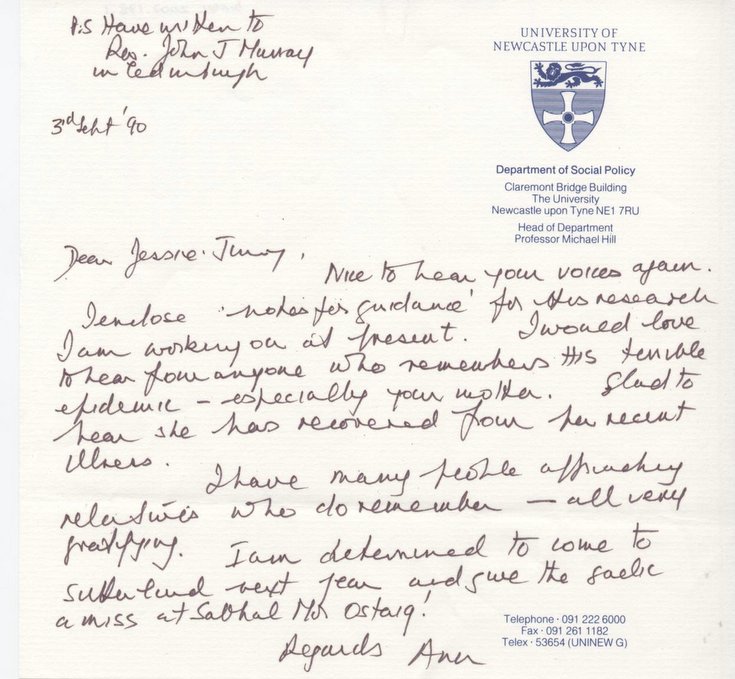 P.S Have written to
Rev. John J Murray
in Edinburgh
3rd Sept '90
UNIVERSITY OF
NEWCASTLE UPON TYNE
Department of Social Policy
Claremont Bridge Building
The University
Newcastle upon Tyne NE1 7RU
Head of Department
Professor Michael Hill
Dear Jessie, Jimmy,
Nice to hear your voices again.
I enclose 'notes for guidance' for this research
I am working on at present. I would love
to hear from anyone who remembers this terrible
epidemic – especially your mother. Glad to
hear she has recovered from her recent
illness.
I have many people approaching
relatives who do remember – all very
gratifying. I am determined to come to
Sutherland next year and give the gaelic
a miss at Sabhal Mor Ostaig!
Regards Ann
Telephone · 091 222 6000
Fax · 091 261 1182
Telex · 53654 (UNINEW G)